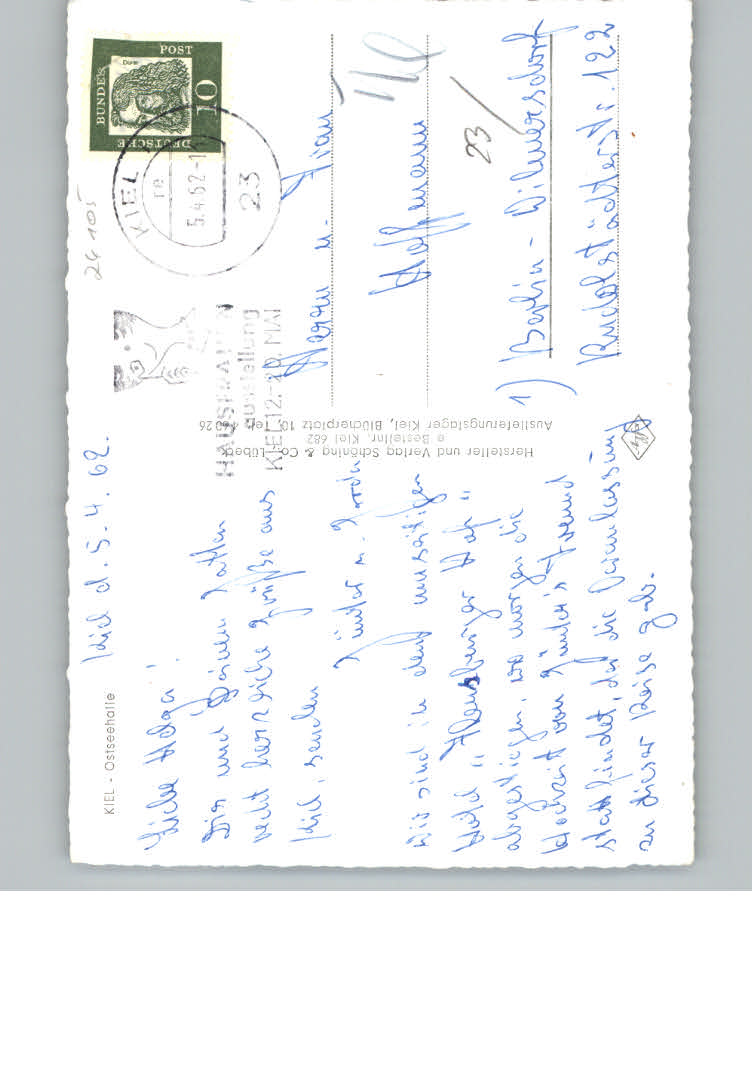 KIEL - Ostseehalle
Kiel d. 5.4.62.
Liebe Helga!
Dir und Deinem Gatten
recht herzliche Grüße aus
Kiel, senden
Günter u.
Wir sind in dem umseitigen
Hotel „Flensburger Hof"
abgestiegen, wo morgen die
Hochzeit von Günter's Freund
stattfindet, der die Veranlassung
zu dieser Reise gab.
Hersteller und Verlag Schöning & Co., Lübeck
e Bestellnr. Kiel 682
Auslieferungslager Kiel, Blücherplatz 10, Tel.
24 105
DEUTSCHE
BUNDES
POST
10
Dürer
KIEL
re
5.4.62-1
23
HAUSFRAUEN
ausstellung
KIEL 12.-20. MAI
Herrn u. Frau
Hoffmann
23/
1) Berlin - Wilmersdorf
Rudolstädterstr. 122